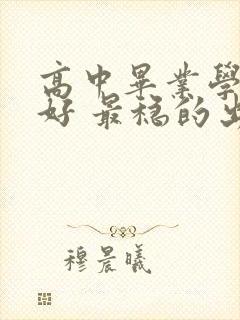 高中畢業學
好 最穩的出
穆晨曦